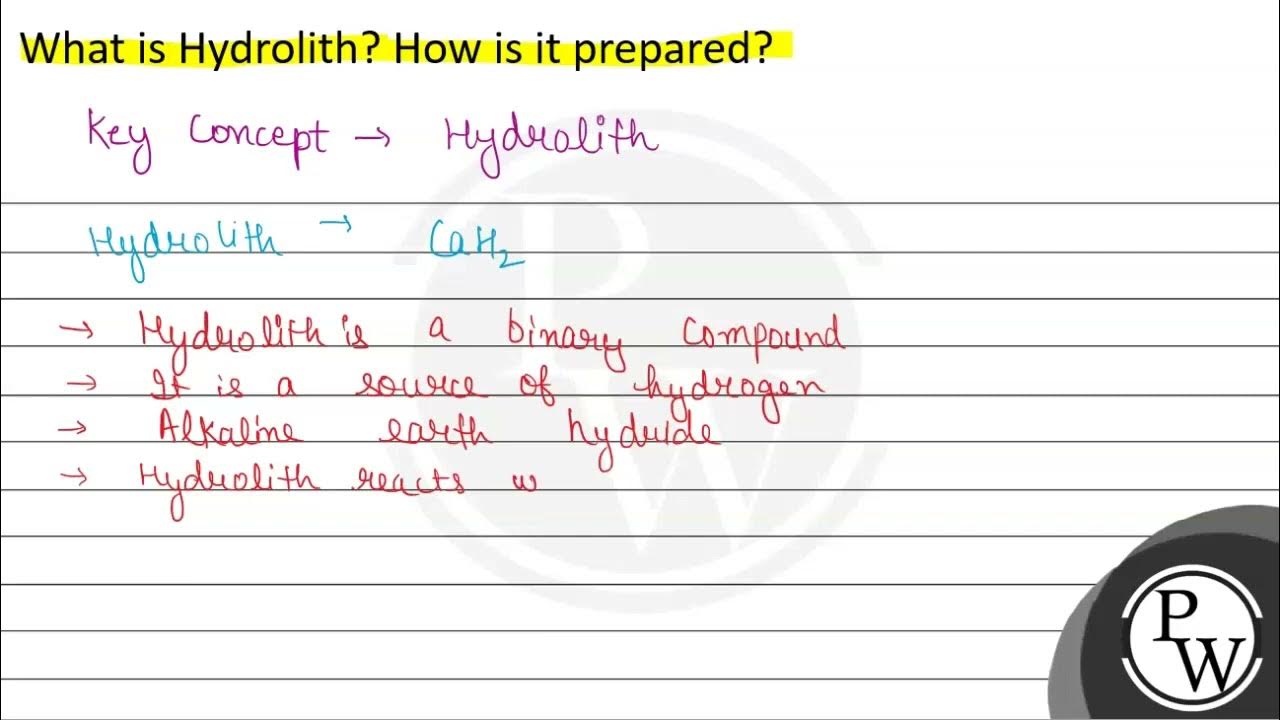 What is Hydrolith? How is it prepared?
Key Concept → Hydrolith
Hydrolith → CaH₂
→ Hydrolith is a binary compound
→ It is a source of hydrogen
→ Alkaline earth hydride
→ Hydrolith reacts w
PW
PW